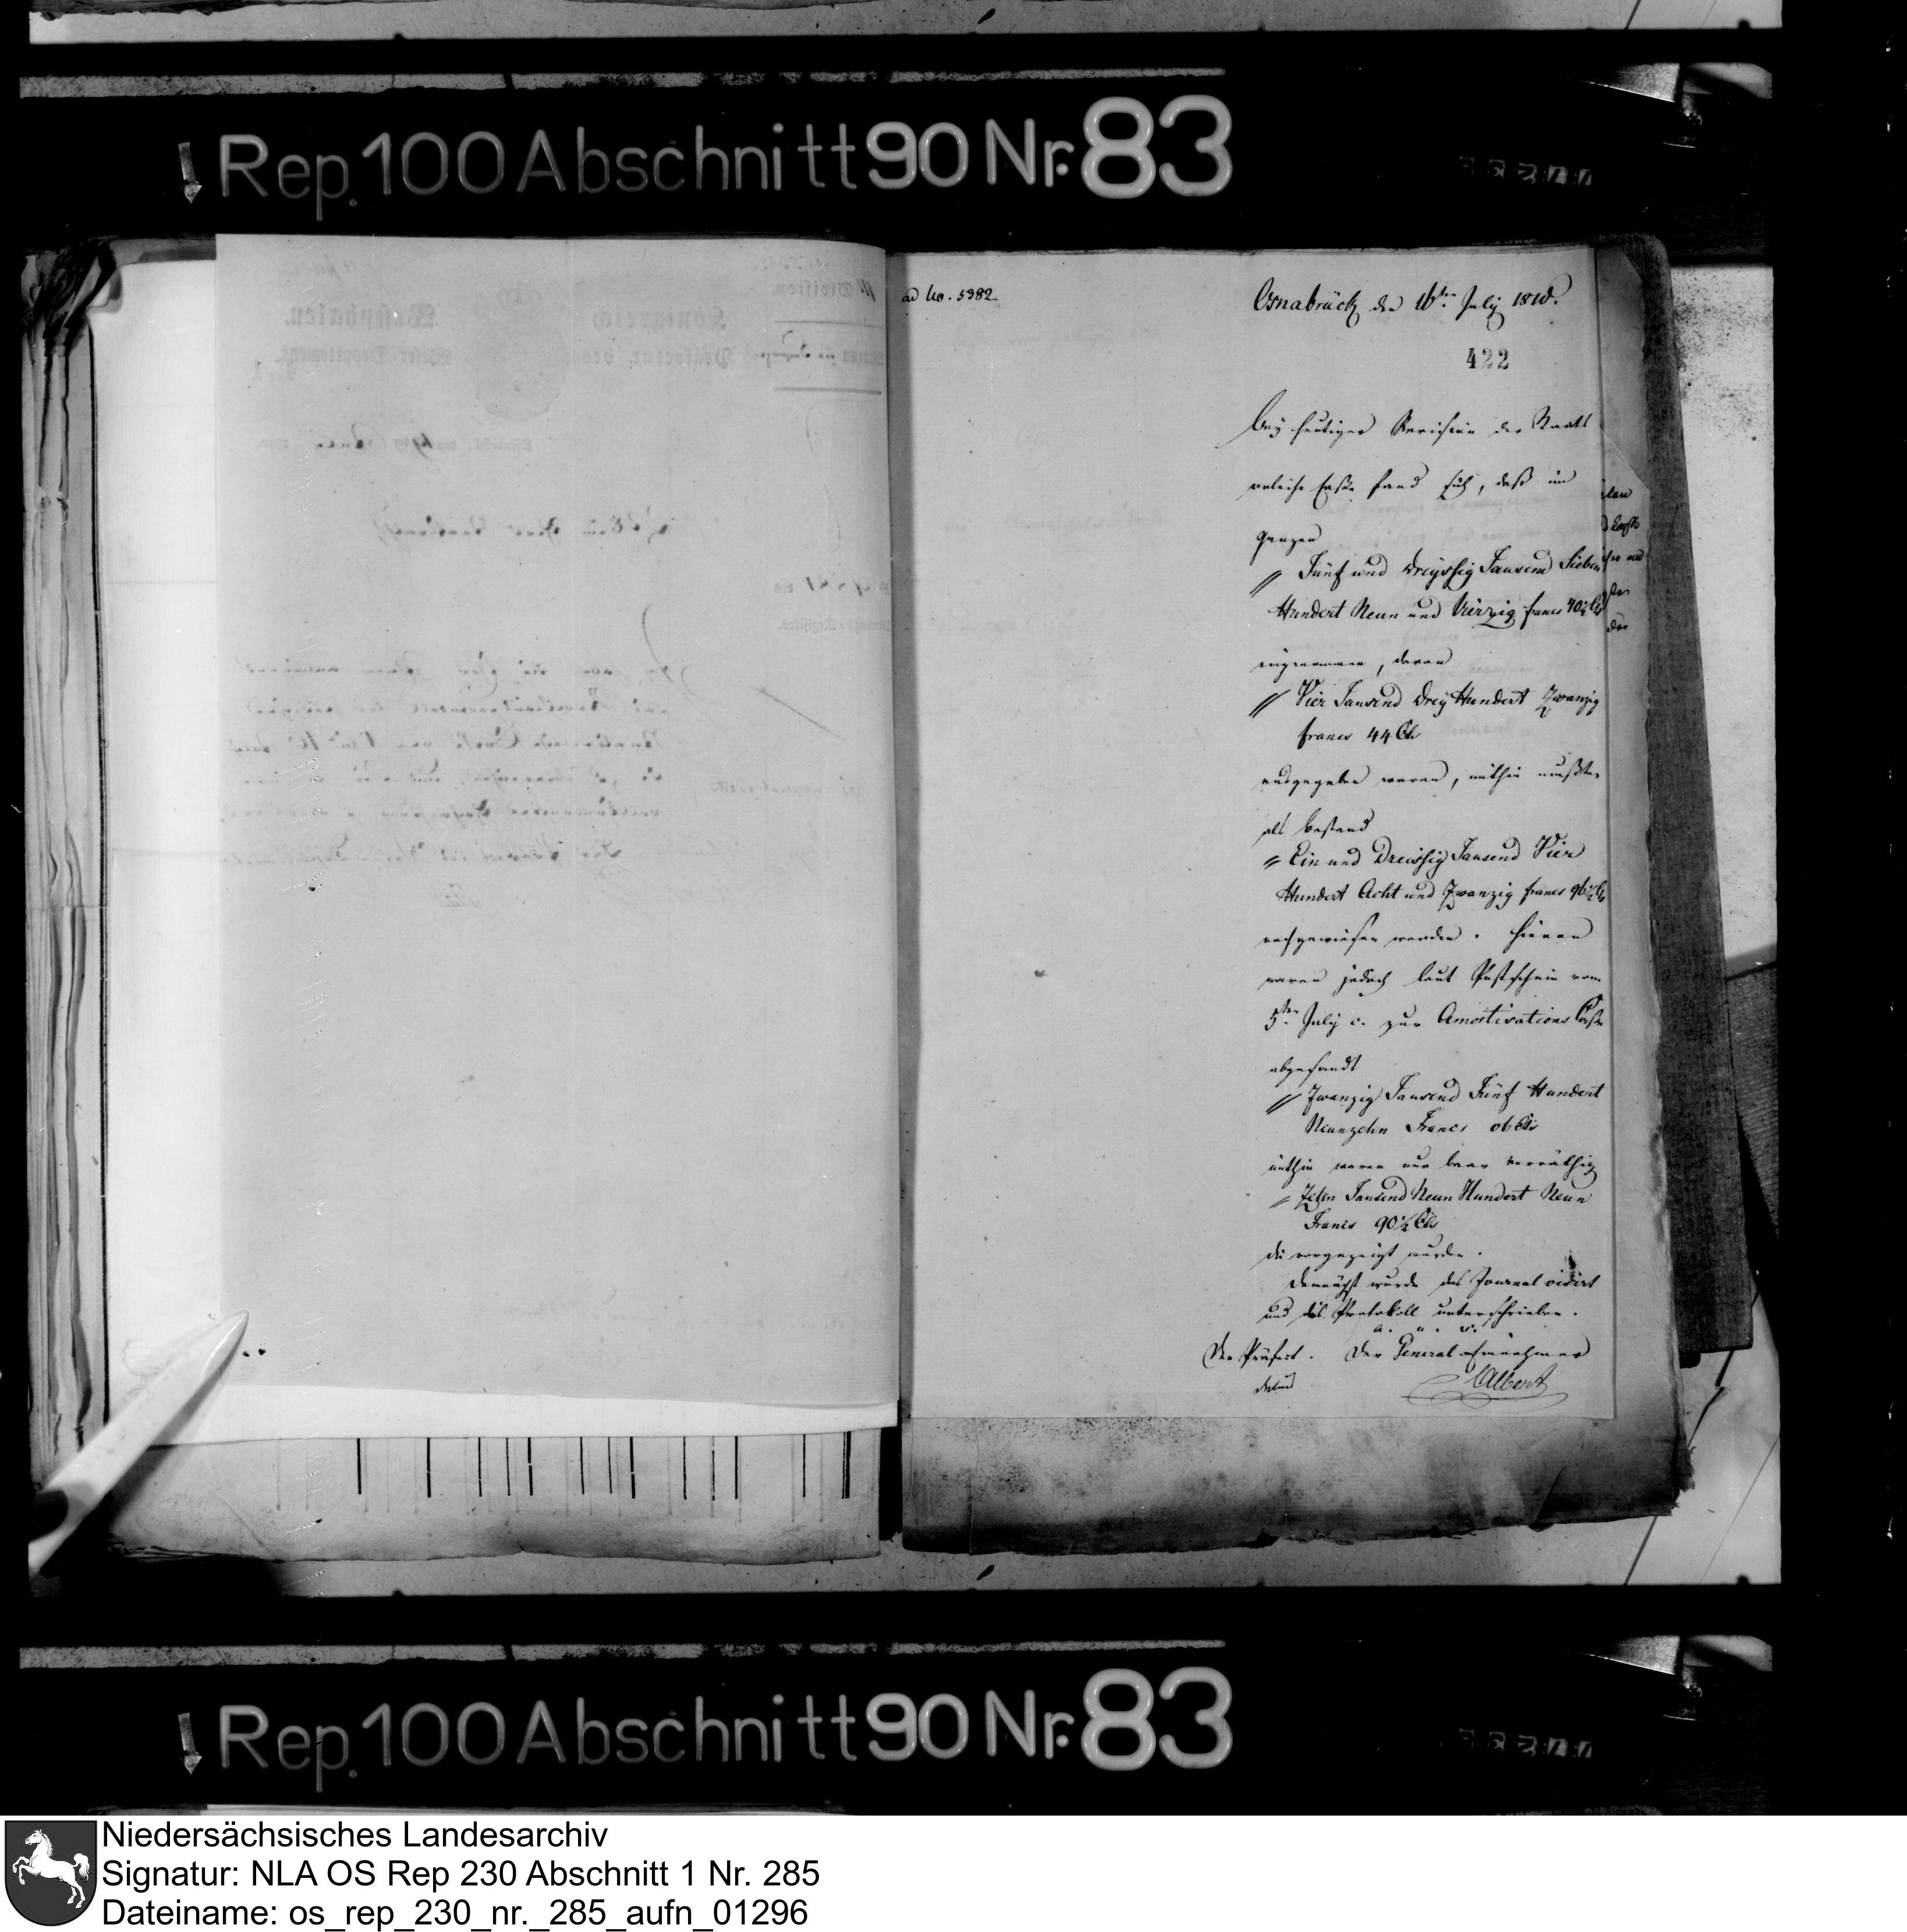 Rep. 100 Abschnitt 90 Nr. 83
ad No. 5382
Osnabrück den 16ten July 1810.
422
Bey heutiger Revision der Staats
anleihe Casse fand sich, daß im
ganzen
// Fünf und Dreyssig Tausend Sieben
Hundert Neun und Vierzig francs 40½ Cts
eingenommen, davon
// Vier Tausend Drey Hundert Zwanzig
francs 44 Cts
ausgegeben waren, mithin mußten
als Bestand
// Ein und Dreissig Tausend Vier
Hundert Acht und Zwanzig francs 96½ Cts
nachgewiesen werden. Hievon
waren jedoch laut Postschein vom
5ten July c. zur Amortisations Casse
abgesandt
// Zwanzig Tausend Fünf Hundert
Neunzehn Francs 06 Cts
mithin waren nur baar vorräthig
// Zehn Tausend Neun Hundert Neun
Francs 90½ Cts
die vorgezeigt wurden.
Demnächst wurde das Journal visirt
und dies Protokoll unterschrieben.
a. u. s.
Der Präfect. Der General-Einnehmer
Albert
Rep. 100 Abschnitt 90 Nr. 83
Niedersächsisches Landesarchiv
Signatur: NLA OS Rep 230 Abschnitt 1 Nr. 285
Dateiname: os_rep_230_nr._285_aufn_01296